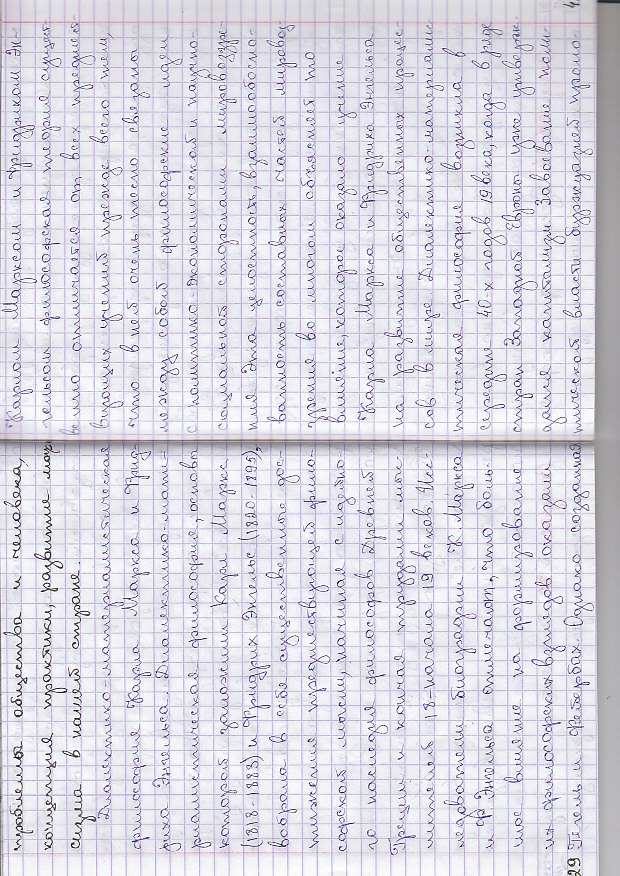 проблемы общества и человека,
концепция практики, развитие марк-
сизма в нашей стране.
Диалектико-материалистическая
философия Карла Маркса и Фрид-
риха Энгельса. Диалектико-мате-
риалистическая философия, основы
которой заложили Карл Маркс
(1818-1883) и Фридрих Энгельс (1820-1895),
вобрала в себя существенные дос-
тижения предшествующей фило-
софской мысли, начиная с идейно-
го наследия философов Древней
Греции и кончая трудами мыс-
лителей 18-начала 19 веков. Исс-
ледователи биографии К Маркса
и Ф Энгельса отмечают, что боль-
шое влияние на формирование
их философских взглядов оказали
29 Гегель и Фейербах. Однако созданная
Карлом Марксом и Фридрихом Эн-
гельсом философская теория сущест-
венно отличается от всех предшест-
вующих учений прежде всего тем,
что в ней очень тесно связаны
между собой философские идеи
с политико-экономической и научно-
социальной сторонами мировоззре-
ния. Эта целостность, взаимообосно-
ванность составных частей мировоз-
зрения во многом объясняет то
влияние, которое оказало учение
Карла Маркса и Фридриха Энгельса
на развитие общественных процес-
сов в мире. Диалектико-материалис-
тическая философия возникла в
середине 40х годов 19 века, когда в ряде
стран Западной Европы уже утверж-
дался капитализм. Завоевание поли-
тической власти буржуазией проло-
4.